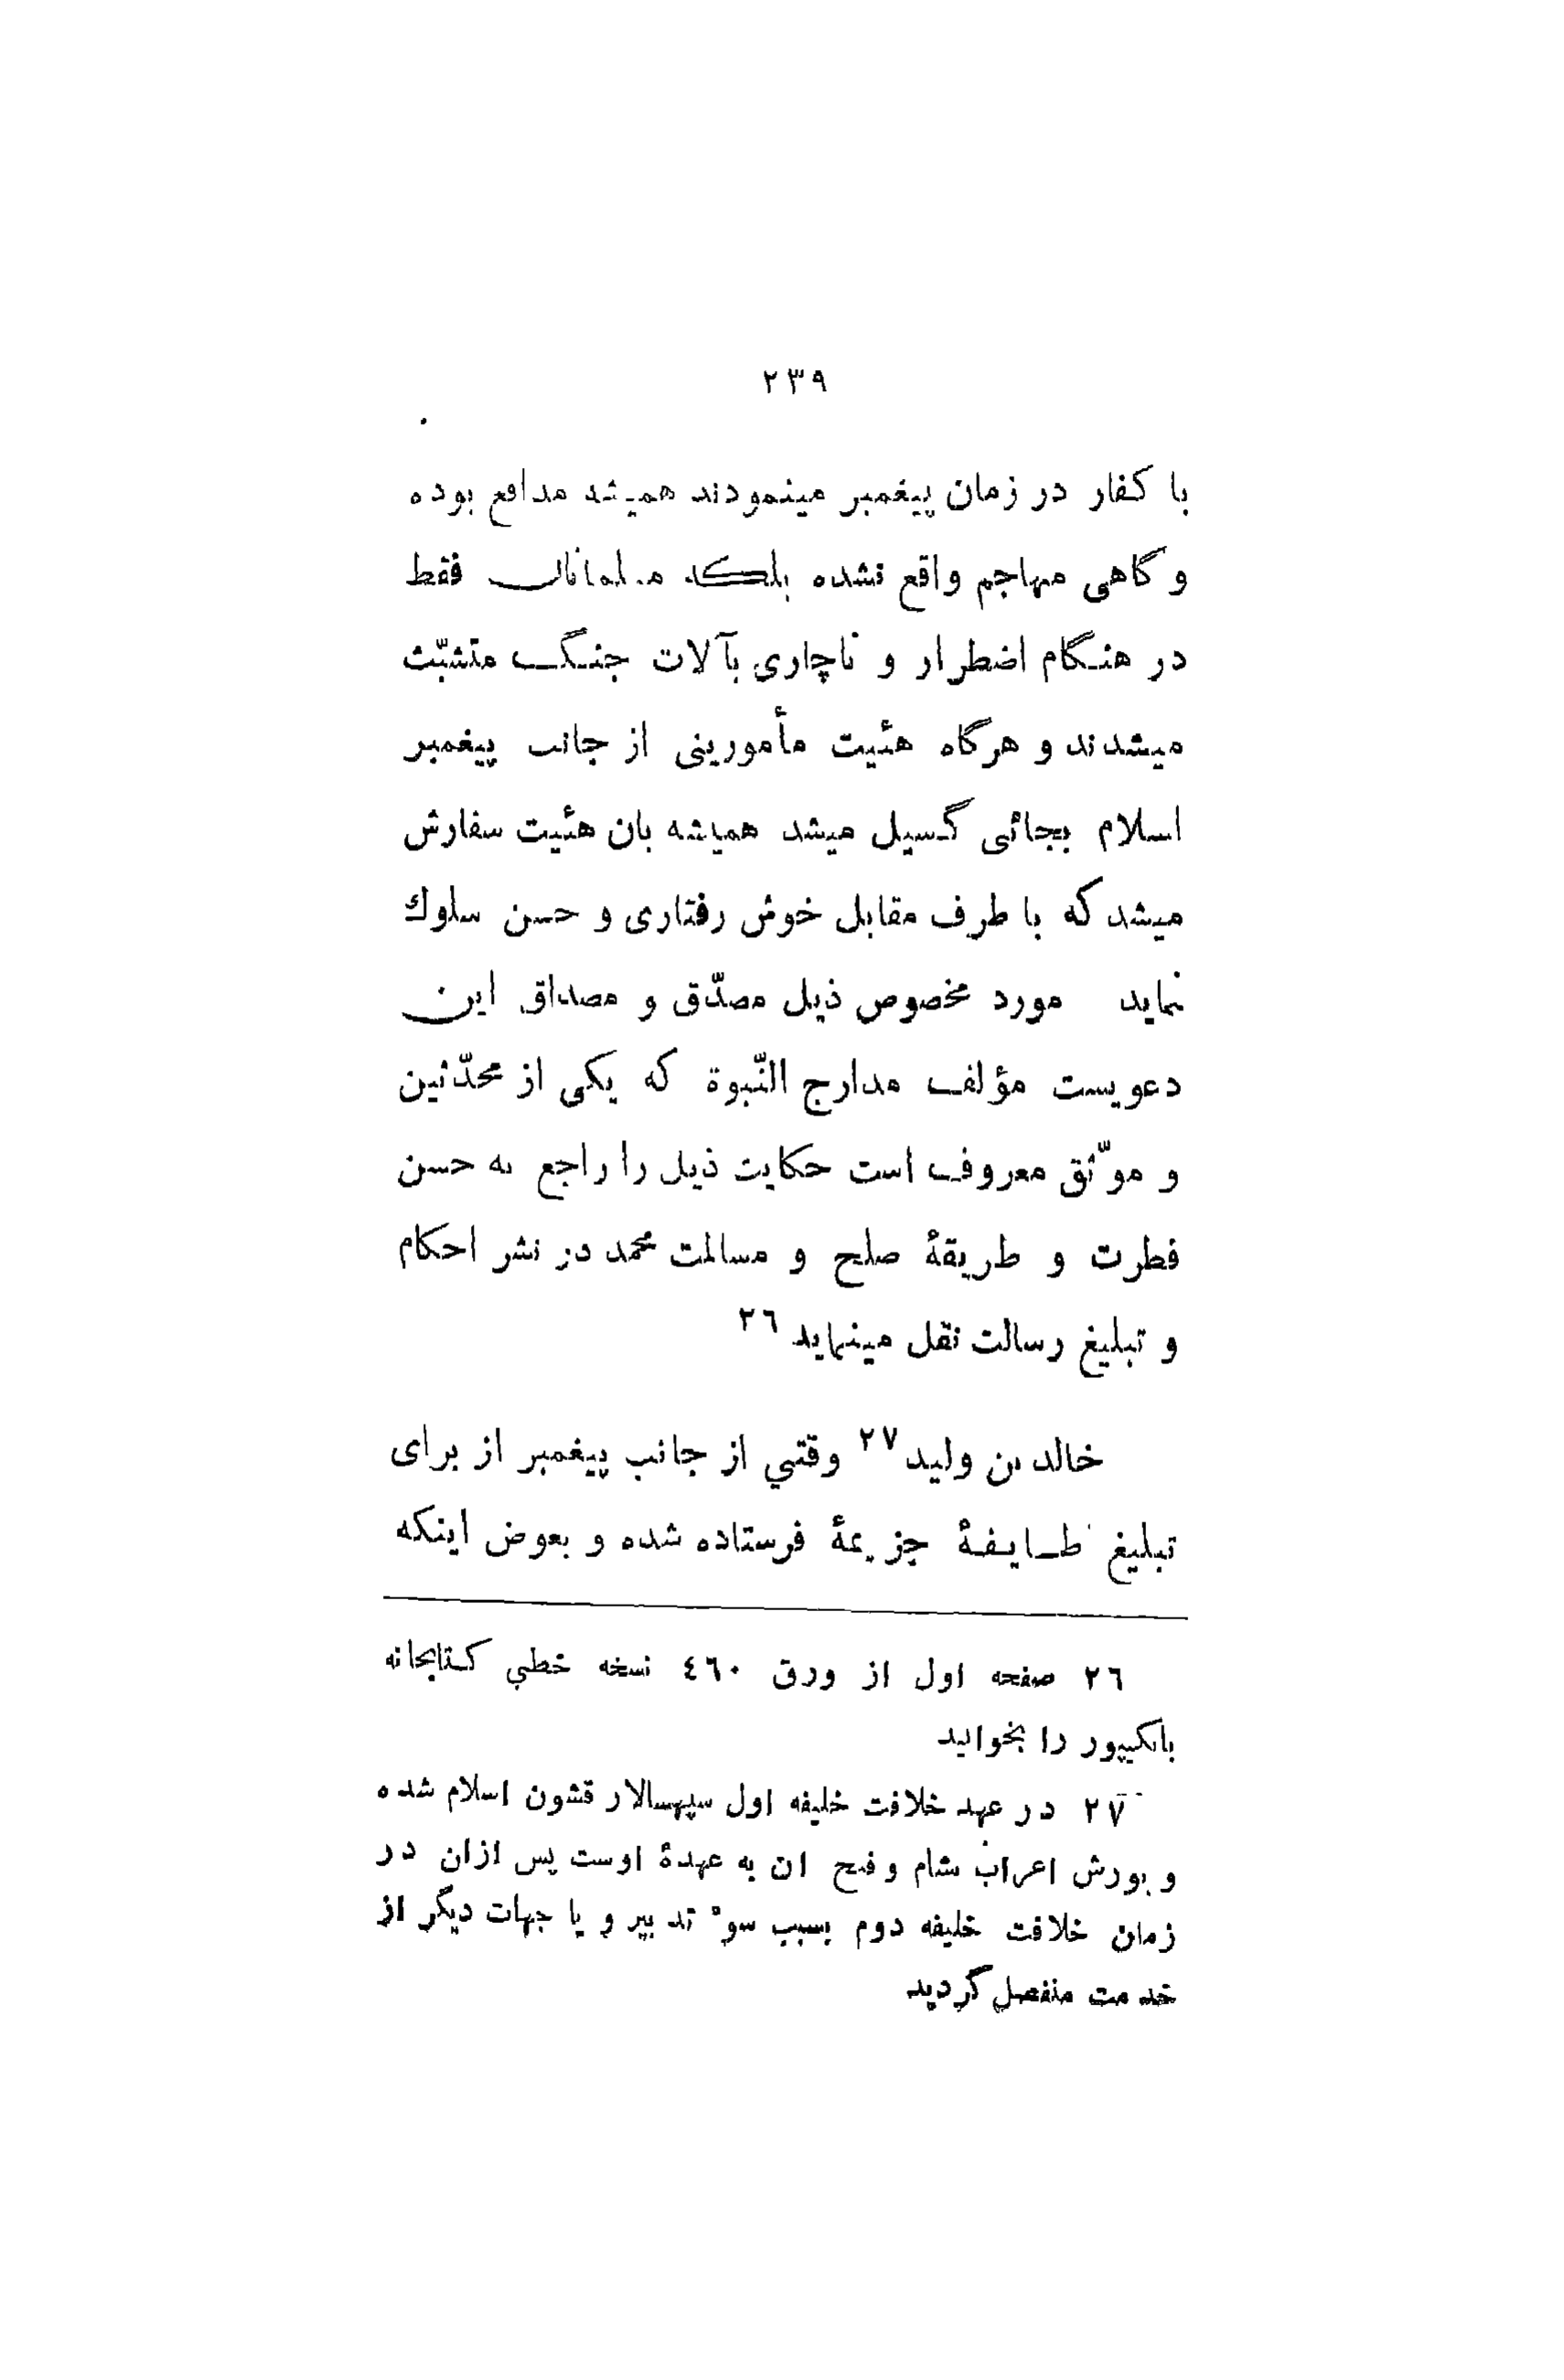 ٢٣٩
با كفار در زمان پیغمبر مینمودند همیشه مدافع بوده
و گاهی مهاجم واقع نشده بلكه مسلمانان فقط
در هنگام اضطرار و ناچاری بآلات جنگ متشبّث
میشدند و هرگاه هئیت مأمورینی از جانب پیغمبر
اسلام بجائی گسیل میشد همیشه بان هئیت سفارش
میشد كه با طرف مقابل خوش رفتاری و حسن سلوك
نماید مورد مخصوص ذیل مصدّق و مصداق این
دعویست مؤلف مدارج النّبوة كه یكی از محدّثین
و موثّق معروف است حكایت ذیل را راجع به حسن
فطرت و طریقۀ صلح و مسالمت محمد در نشر احكام
و تبلیغ رسالت نقل مینماید ٢٦
خالد بن ولید ٢٧ وقتي از جانب پیغمبر از برای
تبلیغ طایفۀ جزیمۀ فرستاده شده و بعوض اینكه
٢٦ صفحه اول از ورق ٤٦٠ نسخه خطي كتابخانه
بانكیپور را بخوانید
٢٧ در عهد خلافت خلیفه اول سپهسالار قشون اسلام شده
و یورش اعراب شام و فتح ان به عهدۀ اوست پس ازان در
زمان خلافت خلیفه دوم بسبب سوء تدبیر و یا جهات دیگر از
خدمت منفصل گردید